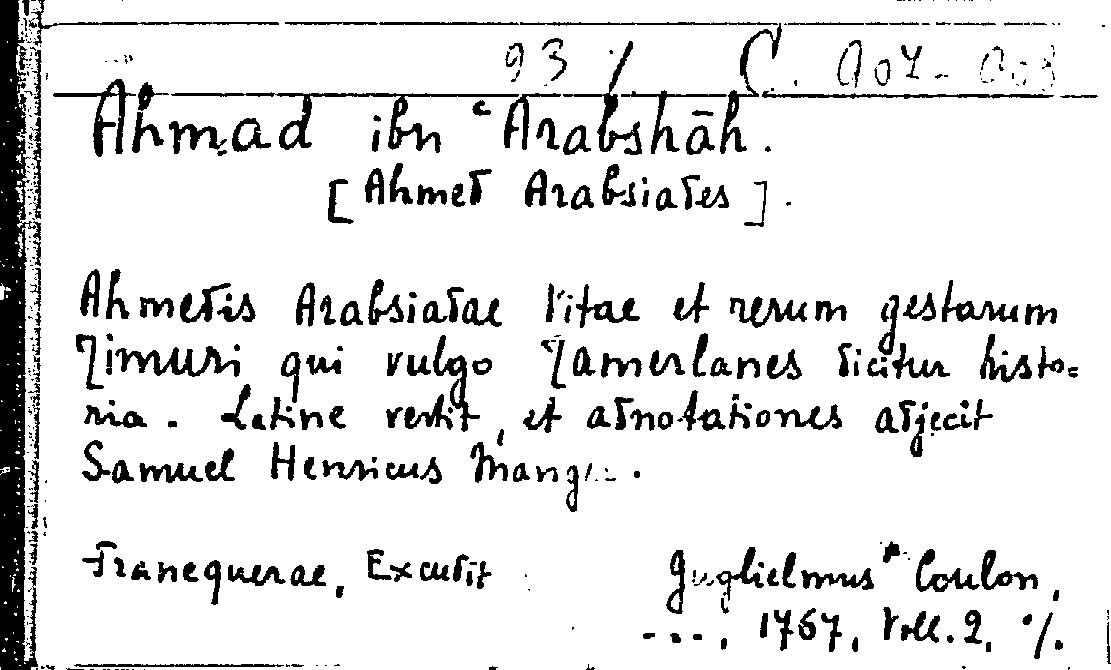 93 /. C. 907-
Ahmad ibn ʿArabshāh.
[Ahmed Arabsiades].
Ahmedis Arabsiadae Vitae et rerum gestarum
Timuri qui vulgo Tamerlanes dicitur histo=
ria. Latine vertit, et adnotationes adjecit
Samuel Henricus
Franequerae, Excudit Guglielmus Coulon,
---, 1767, Voll. 2. ·/.